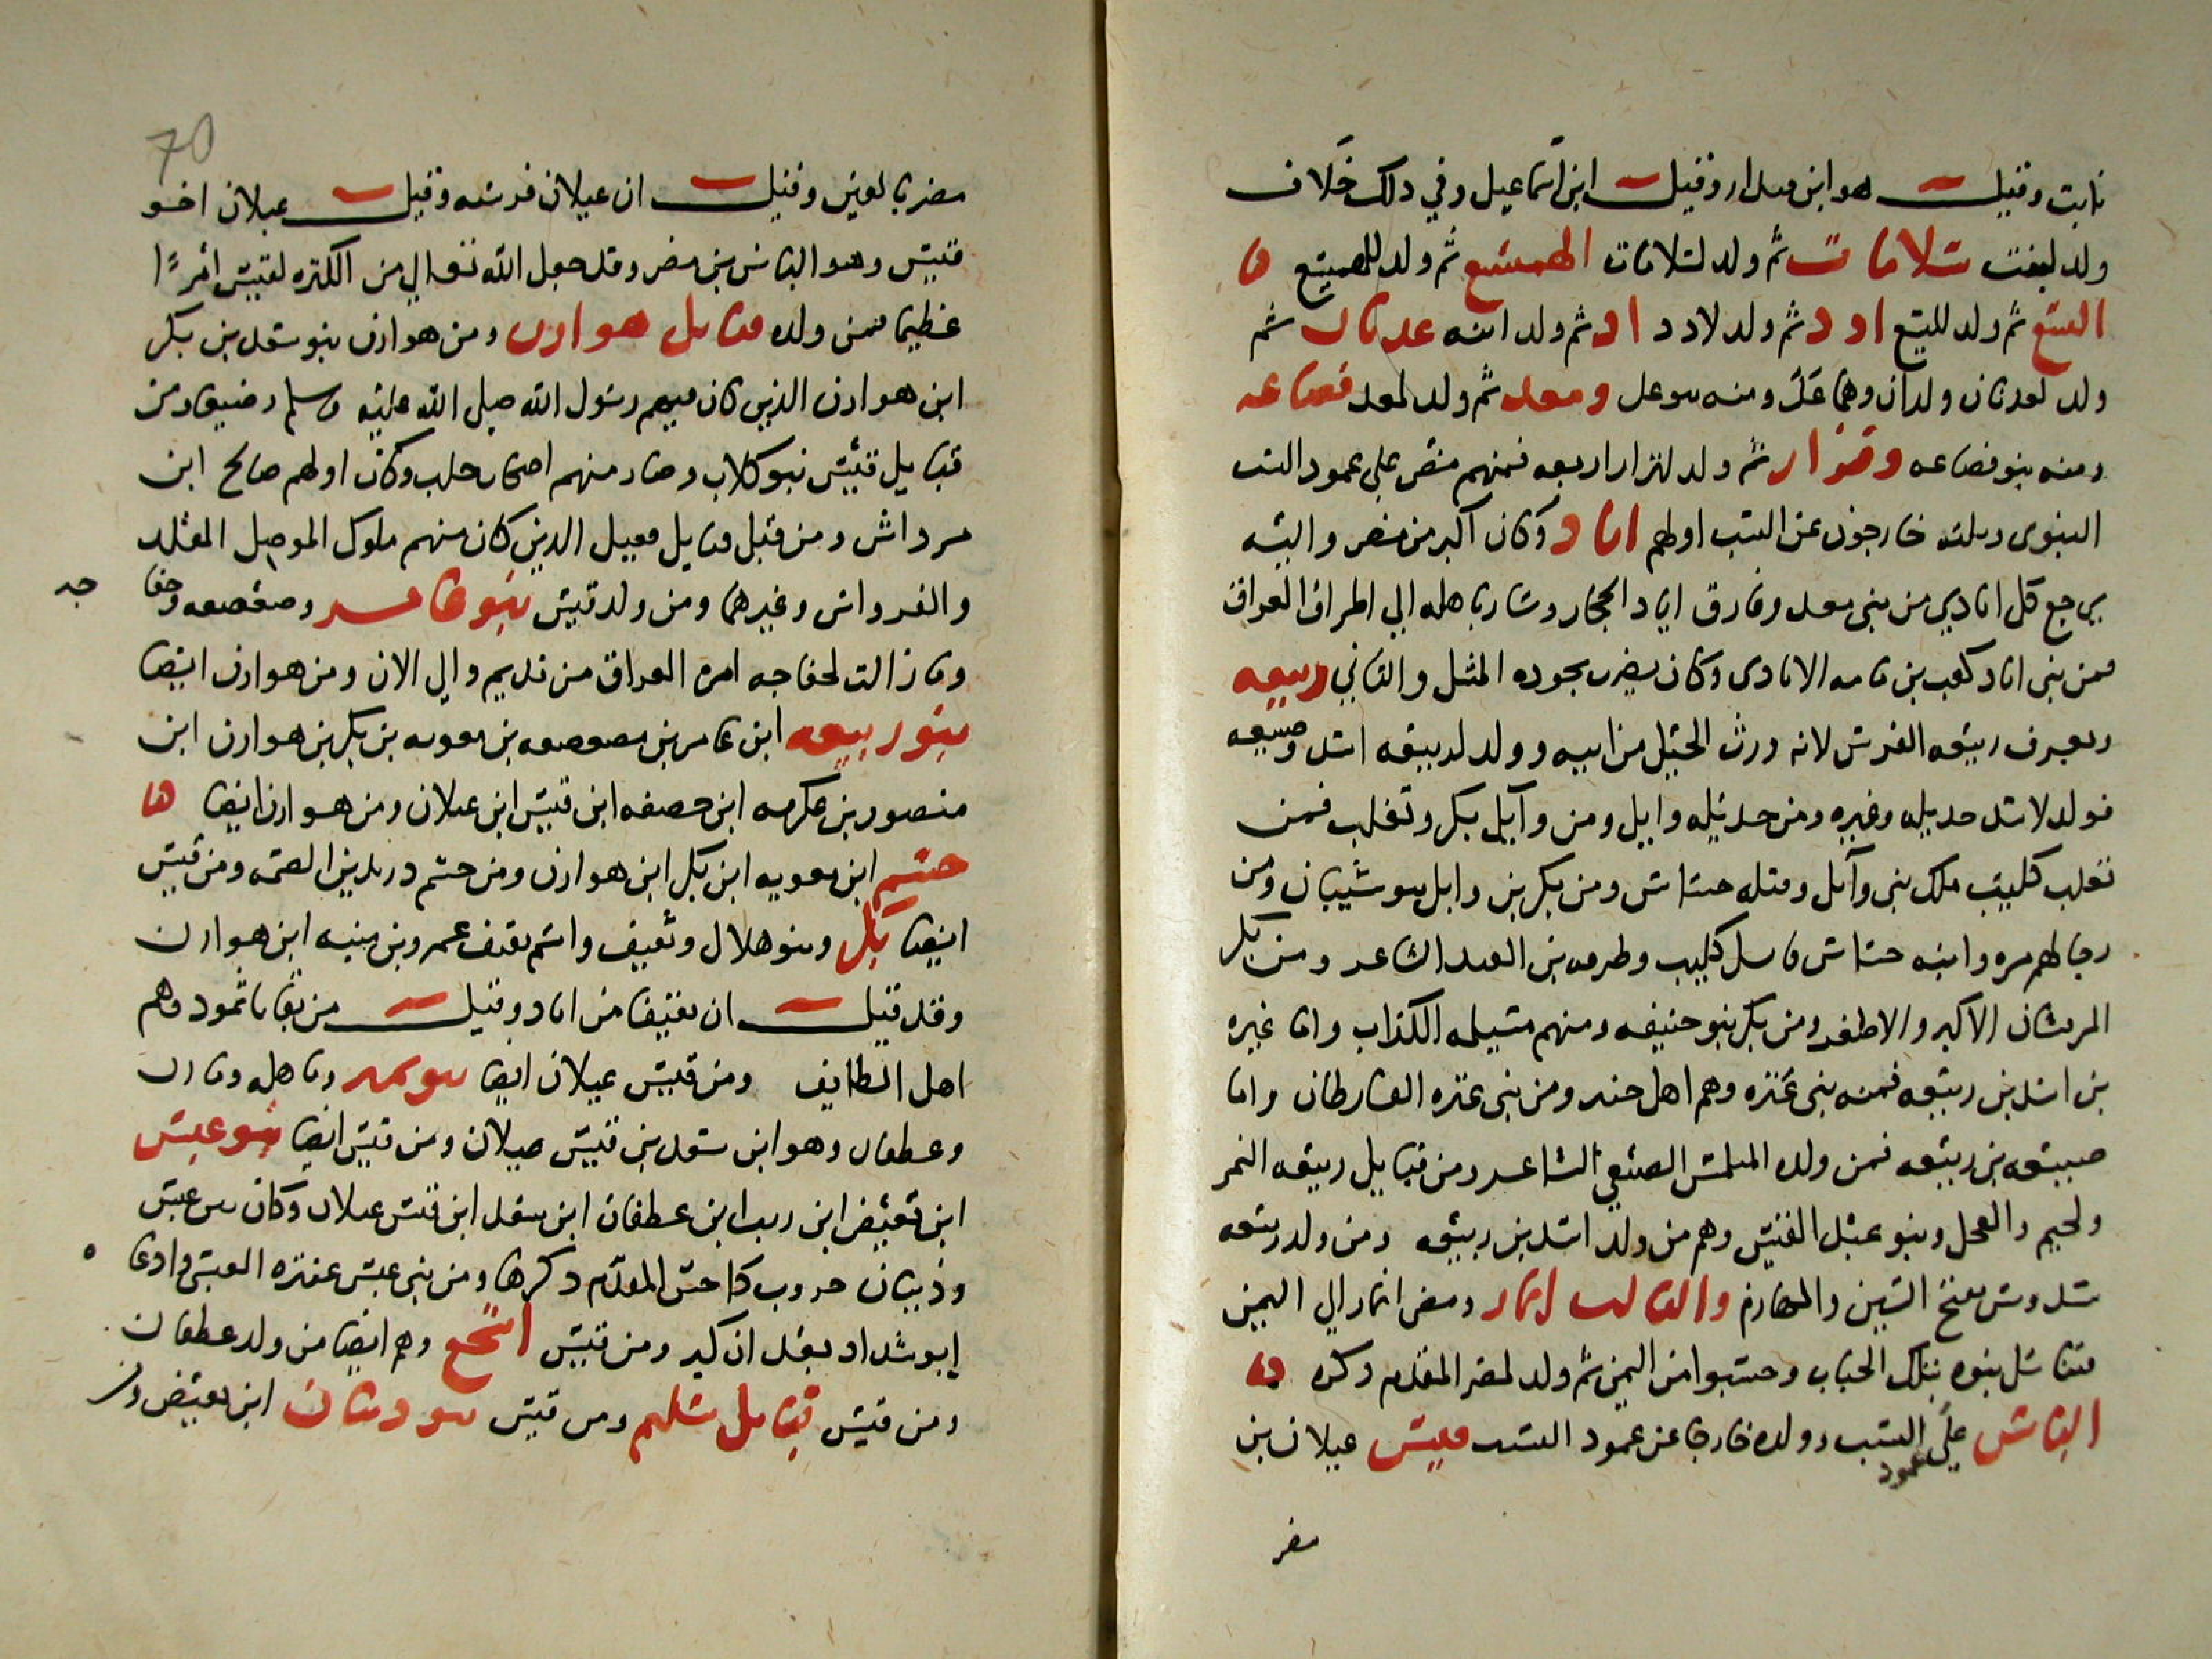 نابت وقيل هو ابن قيدار وقيل ابن اسماعيل وفي ذلك خلاف
ولد لنبت سلامان ثم ولد لسلامان الهميسع ثم ولد للهميسع
اليسع ثم ولد لليسع ادد ثم ولد لادد اد ثم ولد ابنه عدنان ثم
ولد لعدنان ولدان وهما عك ومنه بنو عك ومعد ثم ولد لمعد قضاعه
ومنه بنو قضاعه ونزار ثم ولد لنزار اربعه فمنهم مضر علي عمود النسب
النبوي وثلثه خارجون عن النسب اولهم اياد وكان اكبر من مضر واليه
يرجع كل ايادي من بني معد وفارق اياد الحجاز وسار باهله الي اطراف العراق
فمن بني اياد كعب بن مامه الايادي وكان يضرب بجوده المثل والثاني ربيعه
ويعرف ربيعه الفرس لانه ورث الخيل من ابيه وولد لربيعه اسد وضبيعه
فولد لاسد جديله وغيره ومن جديله وايل ومن وآيل بكر وتغلب فمن
تغلب كليب ملك بني وآيل وقتله جساس ومن بكر بن وايل بنو شيبان ومن
رجالهم مره وابنه جساس قاتل كليب وطرفه بن العبد الشاعر ومن بكر
المرقشان الاكبر والاصغر ومن بكر بنو حنيفه ومنهم مسيلمه الكذاب واما غيره
بن اسد بن ربيعه فمنه بني عنزه وهم اهل خيبر ومن بني عنزه القارظان واما
ضبيعه بن ربيعه فمن ولده المتلمس الضبعي الشاعر ومن قبايل ربيعه النمر
ولجيم والعجل وبنو عبد القيس وهم من ولد اسد بن ربيعه ومن ولد ربيعه
سدوس بفتح السين واللهازم والثالث انمار ومضي انمار الي اليمن
فتناسل بنوه بتلك الجبال وحسبوا من اليمن ثم ولد لمضر المقدم ذكره
الياس علي عمود النسب وولده خارجا عن عمود النسب قيس عيلان بن
مضر
70
مضر بالعين وقيل ان عيلان فرسه وقيل عيلان اخو
قيس وهو الياس بن مضر وقد جعل الله تعالي من الكثره لقيس امرًا
عظيما فمن ولده قبايل هوازن ومن هوازن بنو سعد بن بكر
ابن هوازن الذين كان فيهم رسول الله صلي الله عليه وسلم رضيعا ومن
قبايل قيس بنو كلاب وصار منهم اصحاب حلب وكان اولهم صالح ابن
مرداش ومن قيس قبايل عقيل الذين كان منهم ملوك الموصل المقلد
والقرواش وغيرهما ومن ولد قيس بنو عامر وصعصعه وخفا
جه
وما زالت لخفاجه امره العراق من قديم والي الان ومن هوازن ايضا
بنو ربيعه ابن عامر بن صعصعه بن معويه بن بكر بن هوازن ابن
منصور بن عكرمه ابن حصفه ابن قيس ابن عيلان ومن هوازن ايضا
جشم ابن معويه ابن بكر ابن هوازن ومن جشم دريد بن الصمه ومن قيس
ايضا بكر وبنو هلال وثقيف واسم ثقيف عمرو بن منبه ابن هوازن
وقد قيل ان ثقيفا من اياد وقيل من بقايا ثمود وهم
اهل الطايف ومن قيس عيلان ايضا بنو نمير وباهله ومازن
وغطفان وهو ابن سعد بن قيس عيلان ومن قيس ايضا بنو عبس
ابن بغيض ابن ريث ابن غطفان ابن سعد ابن قيس عيلان وكان بين عبس
وذبيان حروب داحس المقدم ذكرها ومن بني عبس عنتره العبسي وادعا
ابو شداد بعد ان كبر ومن قيس اشجع وهم ايضا من ولد غطفان
ومن قيس قبايل سليم ومن قيس بنو ذبيان ابن بغيض